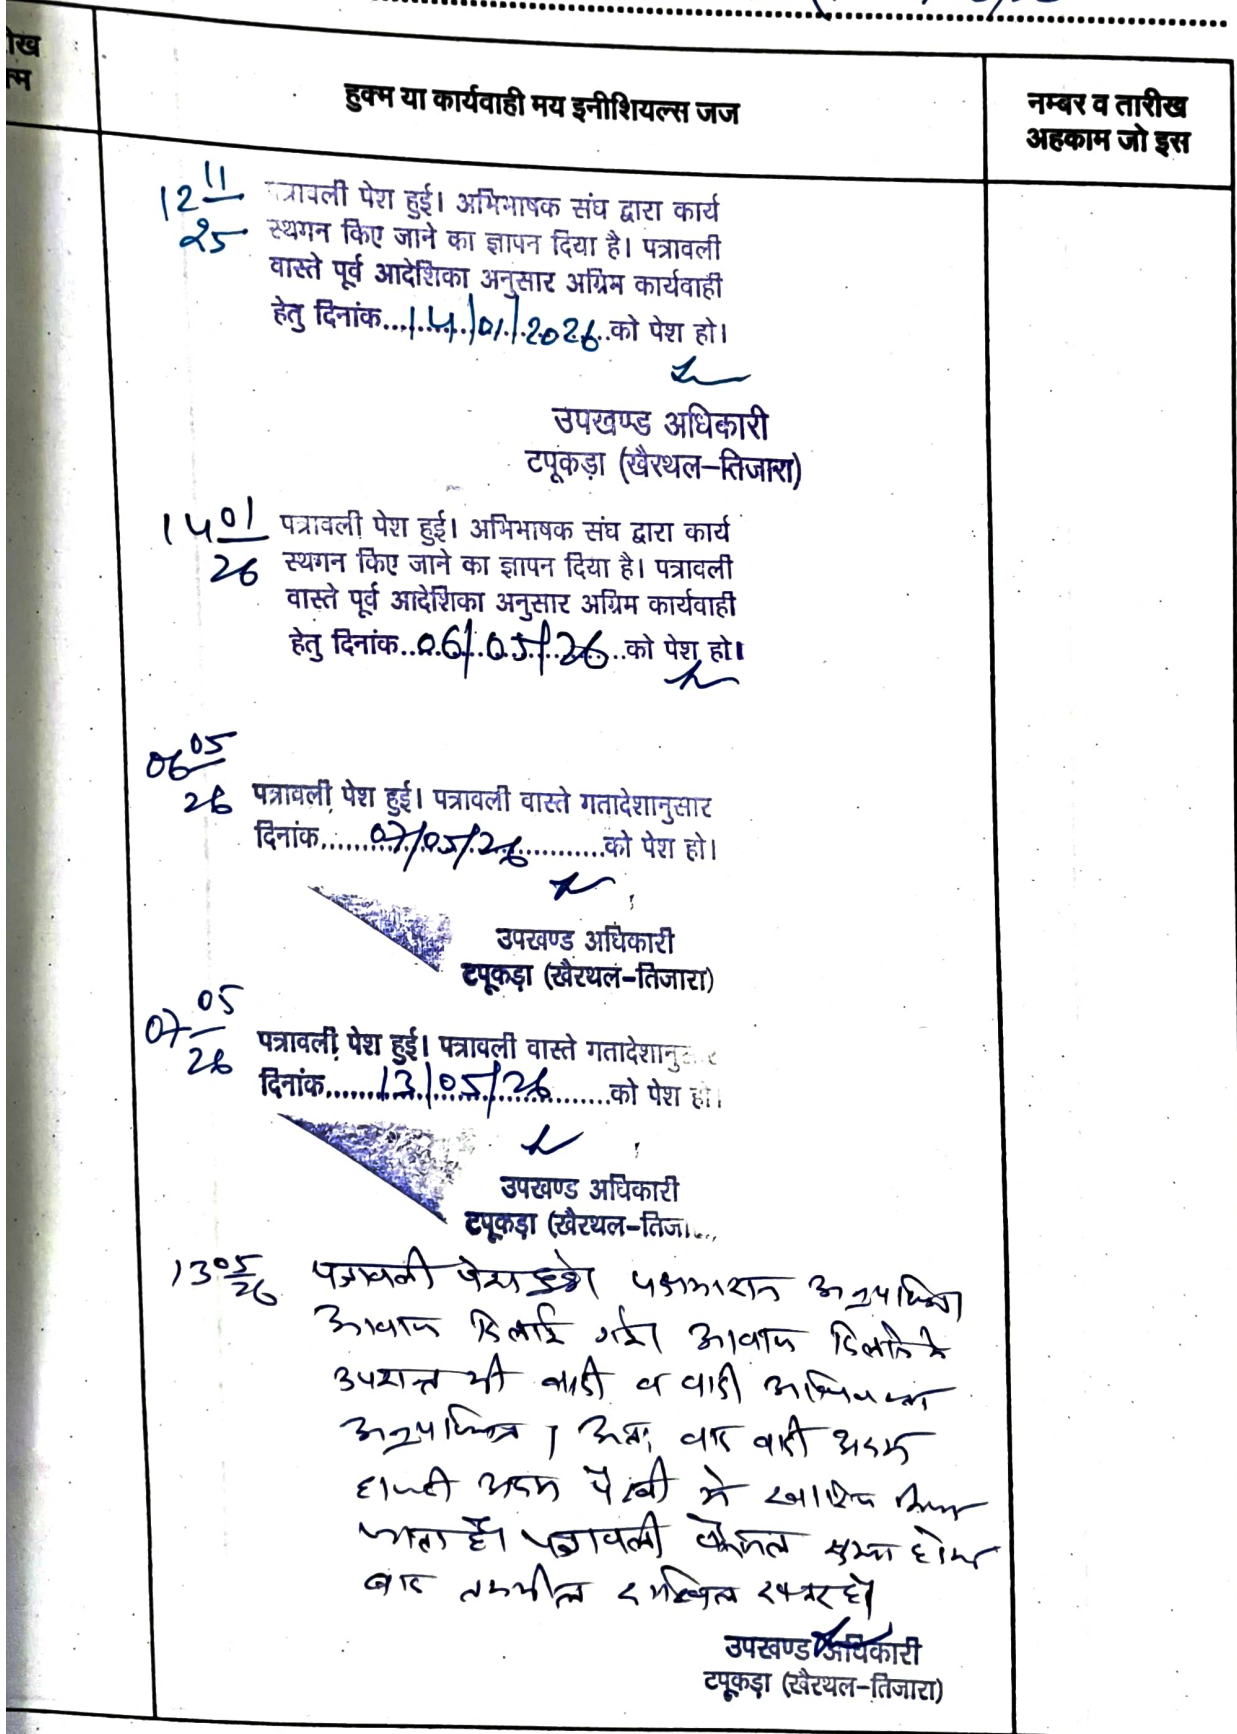 हुक्म या कार्यवाही मय इनीशियल्स जज
नम्बर व तारीख
अहकाम जो इस
12 11/25
पत्रावली पेश हुई। अभिभाषक संघ द्वारा कार्य
स्थगन किए जाने का ज्ञापन दिया है। पत्रावली
वास्ते पूर्व आदेशिका अनुसार अग्रिम कार्यवाही
हेतु दिनांक...14/01/2026..को पेश हो।
उपखण्ड अधिकारी
टपूकड़ा (खैरथल-तिजारा)
14 01/26
पत्रावली पेश हुई। अभिभाषक संघ द्वारा कार्य
स्थगन किए जाने का ज्ञापन दिया है। पत्रावली
वास्ते पूर्व आदेशिका अनुसार अग्रिम कार्यवाही
हेतु दिनांक..06/05/26..को पेश हो।
06 05/26
पत्रावली पेश हुई। पत्रावली वास्ते गतादेशानुसार
दिनांक......07/05/26...........को पेश हो।
उपखण्ड अधिकारी
टपूकड़ा (खैरथल-तिजारा)
07 05/26
पत्रावली पेश हुई। पत्रावली वास्ते गतादेशानुसार
दिनांक.......13/05/26.........को पेश हो।
उपखण्ड अधिकारी
टपूकड़ा (खैरथल-तिजा
13 05/26
पत्रावली पेश हुई। पक्षकारान अनुपस्थित।
आवाज दिलाई गई। आवाज दिलाने के
उपरान्त भी वादी व वादी अधिवक्ता
अनुपस्थित। अतः वाद वादी अदम
हाजरी अदम पैरवी में खारिज किया
जाता है। पत्रावली फैसल शुमार होकर
बाद तकमील दाखिल दफ्तर हो।
उपखण्ड अधिकारी
टपूकड़ा (खैरथल-तिजारा)